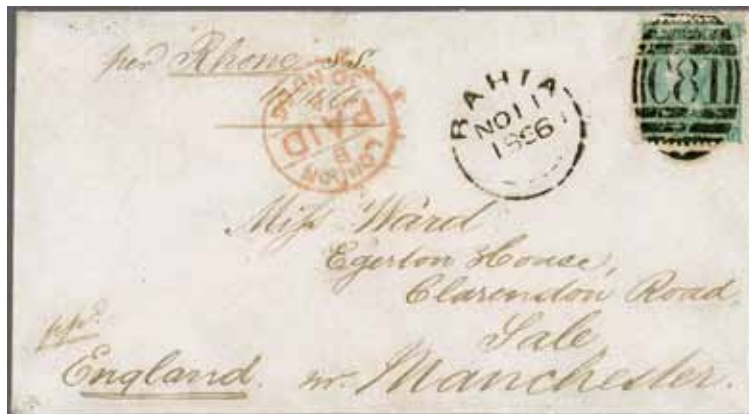 per Rhone S.S.
LONDON
PAID
BAHIA
NO 11
1866
C81
Miss Ward
Egerton House,
Clarendon Road,
Sale
England. nr. Manchester.